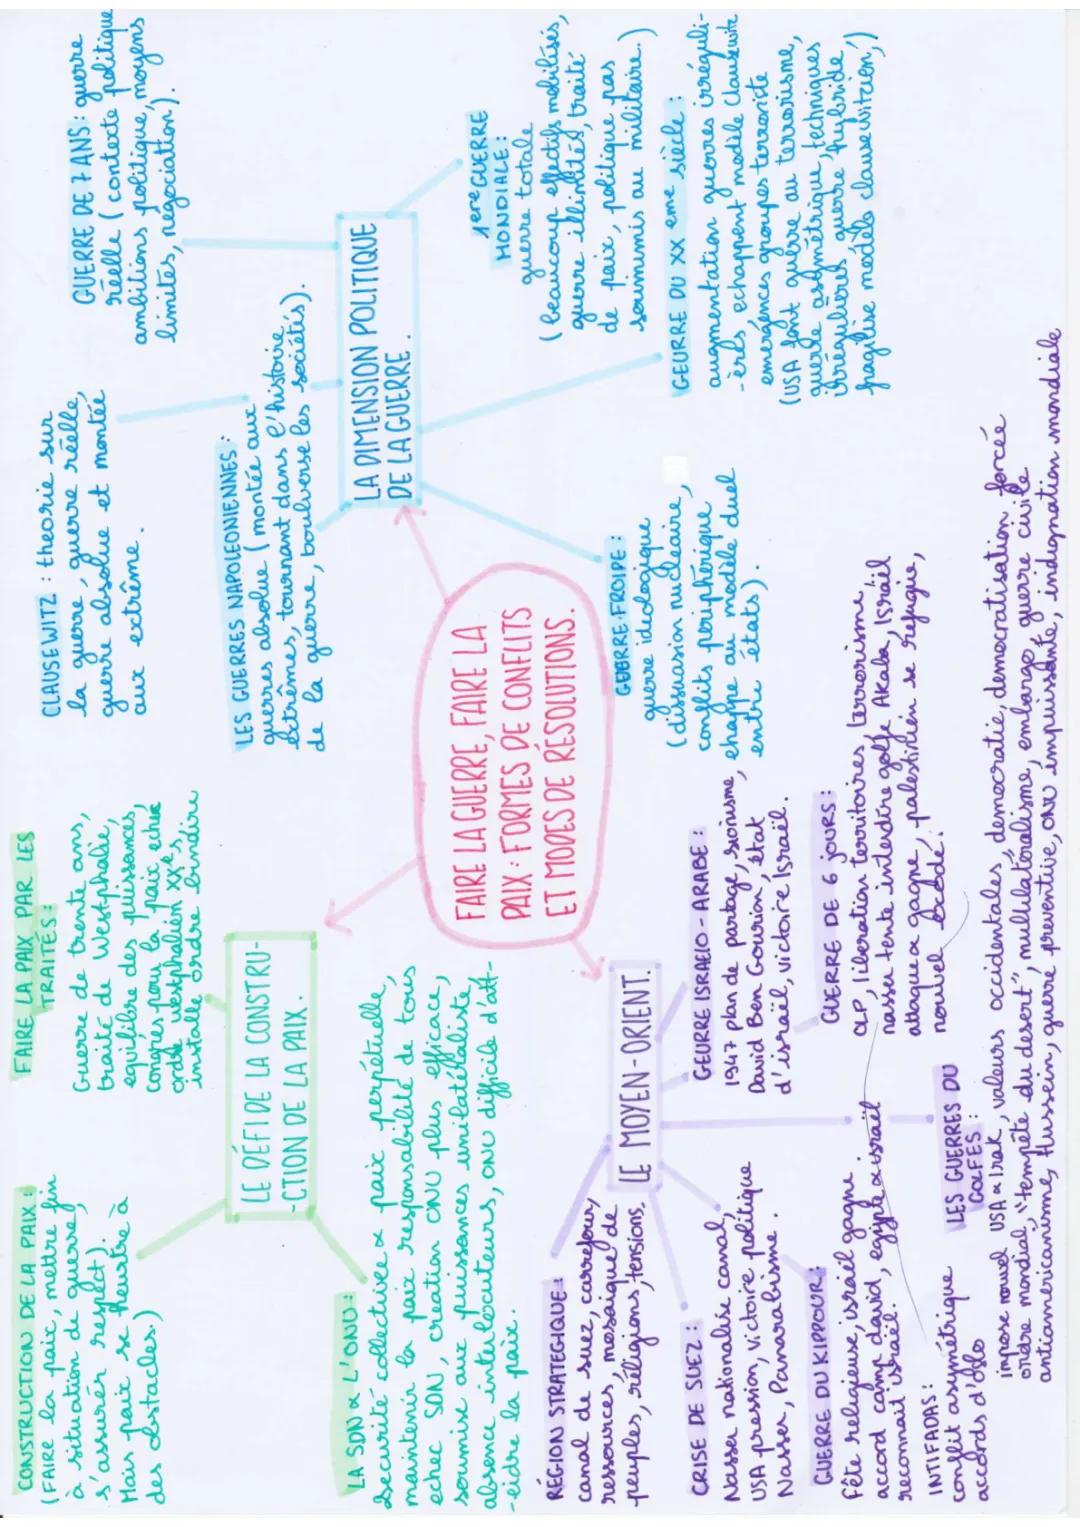 FAIRE LA GUERRE, FAIRE LA
PAIX : FORMES DE CONFLITS
ET MODES DE RÉSOLUTIONS.
LE DÉFI DE LA CONSTRU-
-CTION DE LA PAIX.
CONSTRUCTION DE LA PAIX :
(FAIRE la paix, mettre fin
à situation de guerre,
s'assurer respect).
Mais paix se heurtre à
des obstacles.)
FAIRE LA PAIX PAR LES
TRAITÉS :
Guerre de trente ans,
traité de Westphalie,
equilibre des puissances,
Congres pour la paix echec
ordre westphalien XXe s,
installe ordre bindire
LA SDN & L'ONU :
Securité collective & paix perpétuelle,
maintenir la paix responsabilité de tous
echec SDN, creation ONU plus efficace,
soumise aux puissances unilatéraliste,
absence interlocuteurs, ONU difficile d'att-
-eidre la paix.
LA DIMENSION POLITIQUE
DE LA GUERRE.
CLAUSEWITZ : theorie sur
la guerre, guerre réelle,
guerre absolue et montée
aux extrême.
GUERRE DE 7 ANS : guerre
réelle (contexte politique
ambitions politique, moyens
limités, negociation).
LES GUERRES NAPOLEONIENNES :
guerres absolue (montée aux
extrêmes, tournant dans l'histoire
de la guerre, bouleverse les sociétés).
1ere GUERRE
MONDIALE :
guerre totale
(beaucoup effectifs mobilisés,
guerre illimitées, traité
de paix, politique pas
soumimis au militaire.)
GEURRE DU XX eme siècle :
augmentation guerres irréguli-
-ères echappent modèle clausewitz
emergences groupes terroriste
(USA font guerre au terrorisme,
guerre asymétrique, techniques
irregulières, guerre hybride,
fragilise modèle clausewitzien,)
GUERRE FROIDE :
guerre ideologique
(dissuasion nucleaire,
conflits peripherique
echappe au modèle duel
entre états).
LE MOYEN-ORIENT.
RÉGION STRATEGIQUE :
canal de suez, carrefour,
ressources, mosaique de
peuples, réligions, tensions.
CRISE DE SUEZ :
Nasser nationalise canal,
USA pression, victoire politique
Nasser, Panarabisme.
GUERRE DU KIPPOUR :
Fête religieuse, israël gagne
accord camp david, egypte & israël
reconnait israël.
INTIFADAS :
conflit asymétrique
accords d'oslo
GEURRE ISRAELO-ARABE :
1947 plan de partage, sionisme,
David Ben Gourion, état
d'israël, victoire Israël.
GUERRE DE 6 JOURS :
OLP, liberation territoires, terrorisme,
nasser tente interdire golfe Akaba, Israël
attaque & gagne, palestinien se refugie,
nouvel
LES GUERRES DU
GOLFES :
impose nouvel USA & Irak, valeurs occidentales, democratie, democratisation forcée
ordre mondial, "tempête du desert", multilateralisme, embargo, guerre civile
antiaméricanisme, Hussein, guerre preventive, ONU impuissante, indignation mondiale